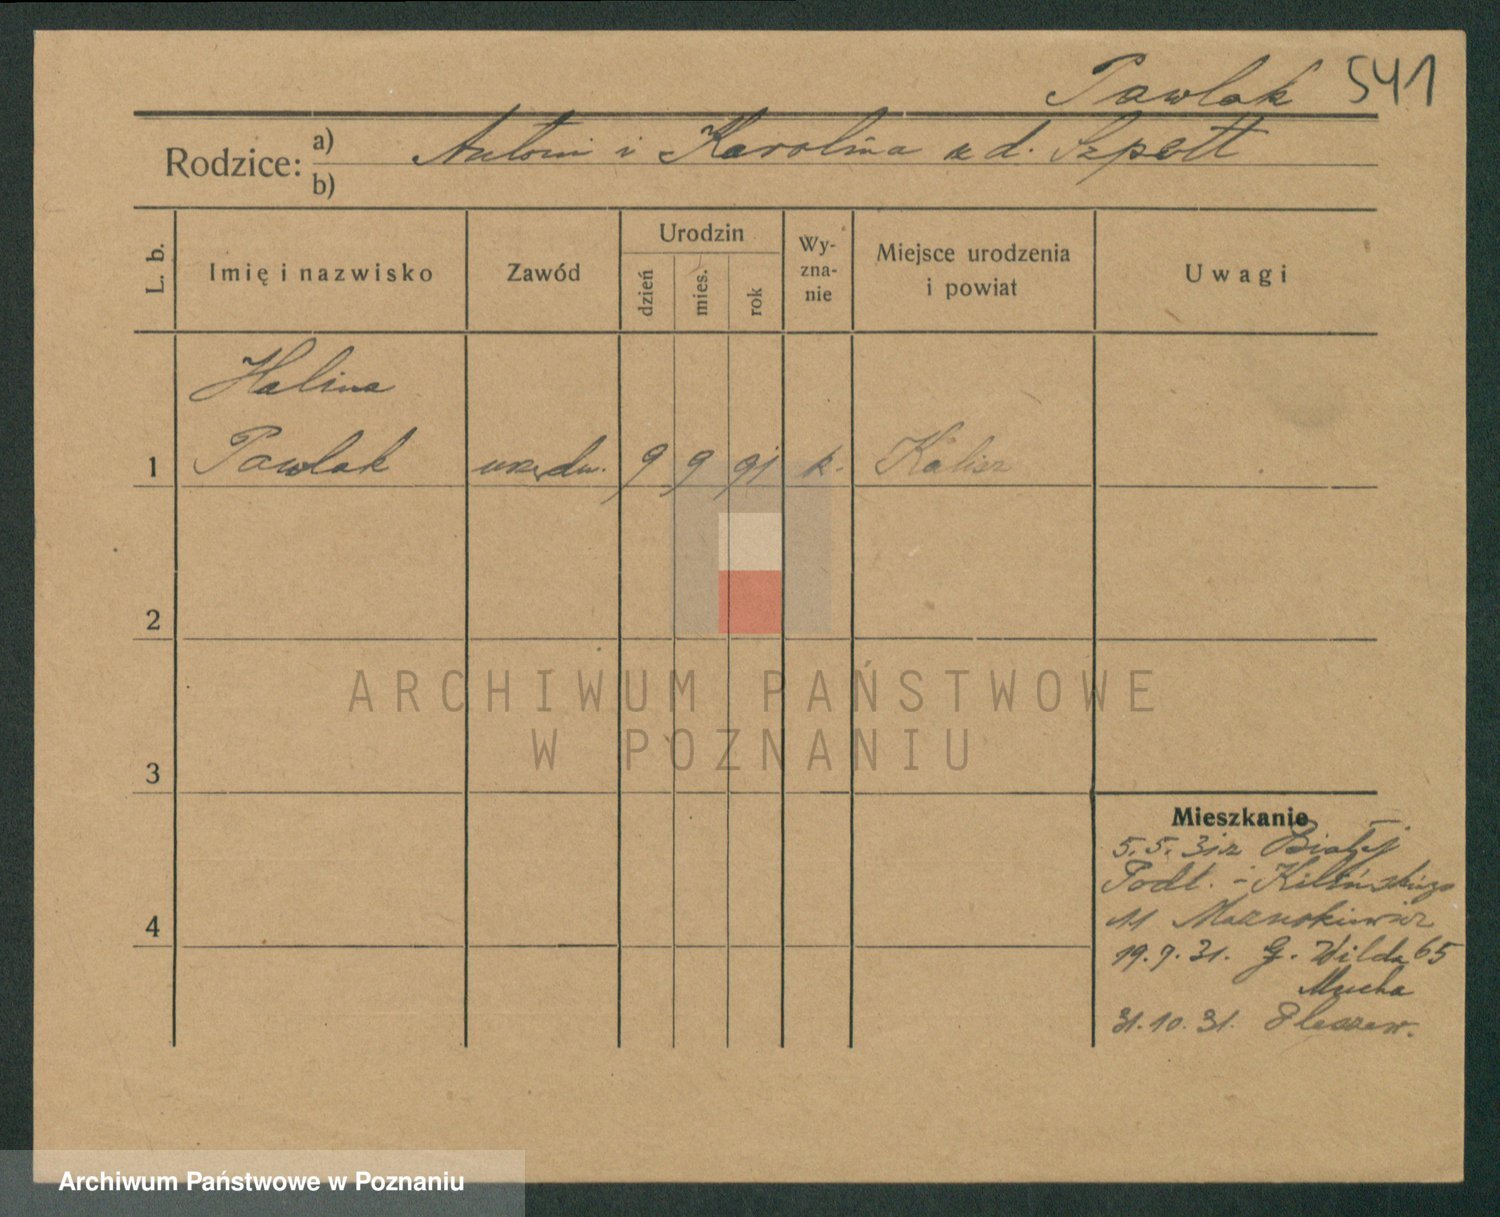 Pawlak 541
Rodzice: a) Antoni i Karolina z d. Szpott
b)
L. b. Imię i nazwisko Zawód Urodzin dzień mies. rok Wyznanie Miejsce urodzenia i powiat Uwagi
Halina
1 Pawlak urzędn. 9 9 91 k. Kalisz
2
3
4
Mieszkanie
5.5.31 z Białej
Podl. - Kilińskiego
11
19.7.31. G. Wilda 65
Mucha
31.10.31. Pleszew.
ARCHIWUM PAŃSTWOWE
W POZNANIU
Archiwum Państwowe w Poznaniu